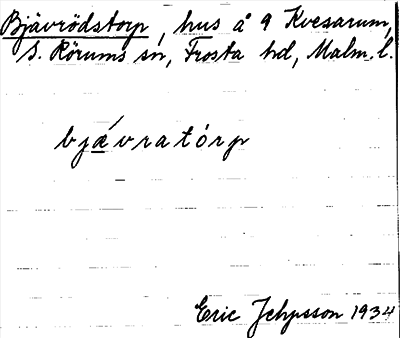 Bjävrödstorp, hus å 9 Kvesarum,
S. Rörums sn, Frosta hd, Malm. l.
bjävratórp
Eric Jehpsson 1934